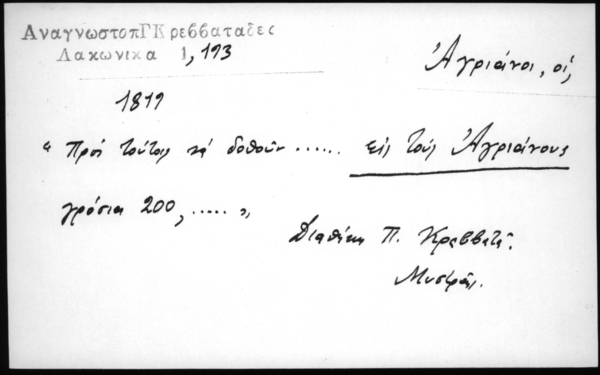 ΑναγνωστοπΓΚρεββαταδες
Λακωνικα 1,193
Ἀγριάνοι, οἱ,
1819
"Πρὸς τούτοις νά δοθοῦν ...... εἰς τοὺς Ἀγριάνους
γρόσια 200, ..... "
Διαθήκη Π. Κρεββατᾶ.
Μυστρᾶς.